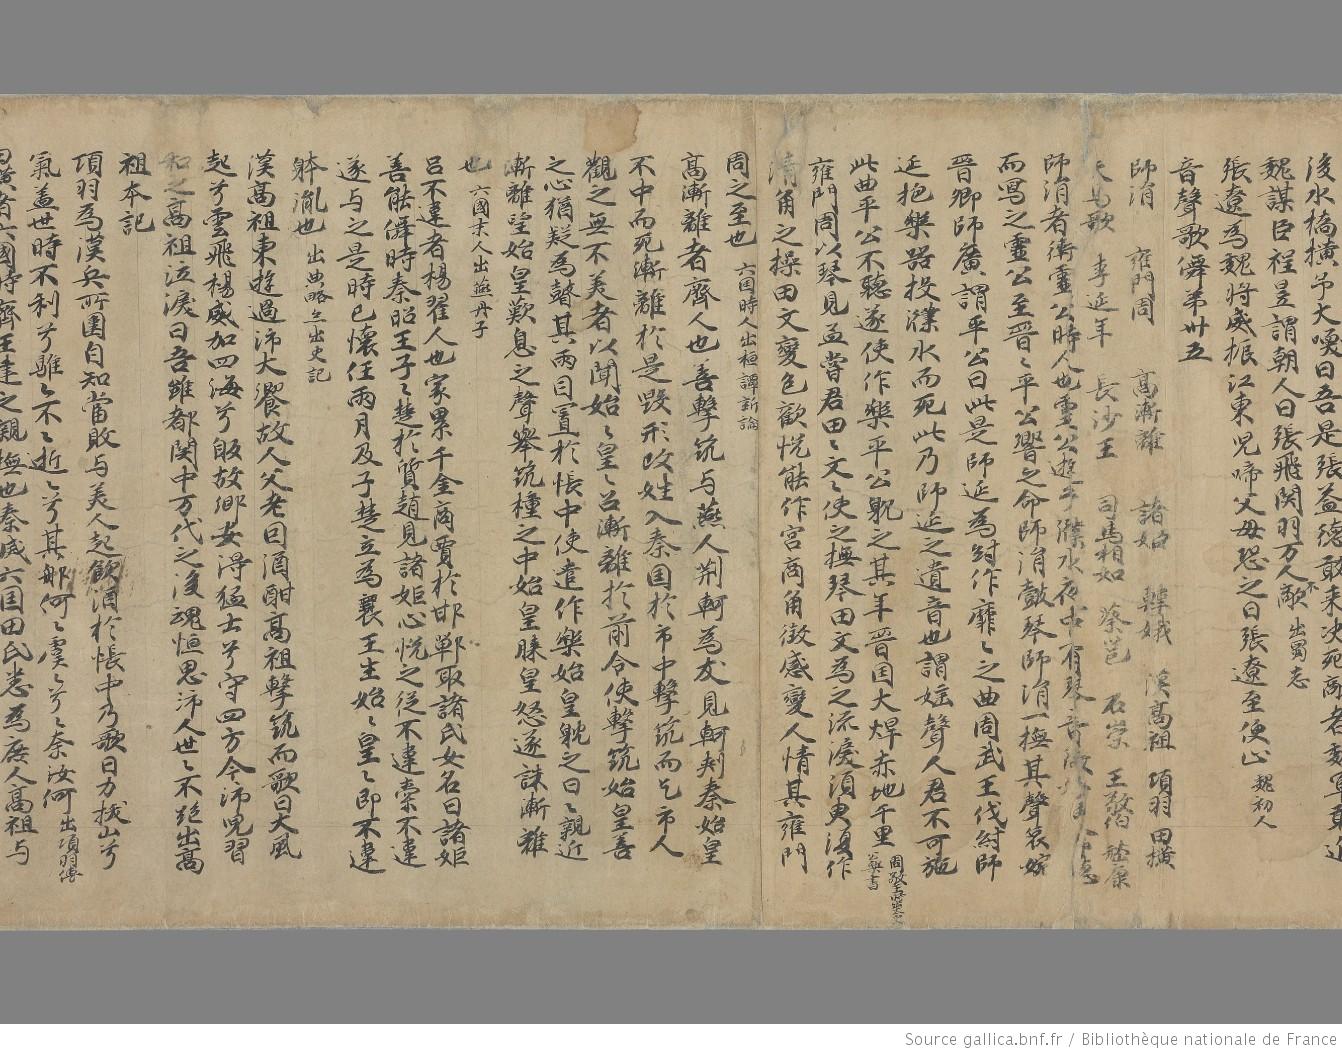 後水橋橫弔大喚曰吾是張益德敢來決死
魏謀臣程昱謂朝人曰張飛関羽万人敵 出蜀志
張遼為魏將威振江東兒啼父母恐之曰張遼至便止 魏初人
音聲歌儛苐卅五
師涓 雍門周 高漸離 諸姫 韓娥 漢高祖 項羽 田横
歌 李延年 長沙王 司馬相如 蔡邕 石崇 王敬伯 嵇康
師涓者衛霊公時人也霊公遊於濮水夜中有琴音
而寫之靈公至晉〻平公響之命師涓皷琴師涓一撫其聲哀
晉卿師廣謂平公曰此是師延為紂作靡〻之曲周武王伐紂師
延抱樂器投濮水而死此乃師延之遺音也謂婬聲人君不可施
此曲平公不聽遂使作樂平公躭之其年晉国大旱赤地千里
雍門周以琴見孟甞君田〻文〻使之撫琴田文為之流淚須臾復作
清角之操田文變色歡恱能作宮商角徴感變人情其雍門
周之至也 六国時人出桓譚新論
高漸離者齊人也善擊筑与燕人荆軻為友見軻刺秦始皇
不中而死漸離於是毀形改姓入秦国於市中擊筑而乞市人
觀之無不美者以聞始〻皇〻召漸離於前令使擊筑始皇善
之心猶疑為瞽其兩目置於帳中使遣作樂始皇躭之日〻親近
漸離望始皇歎息之聲舉筑撞之中始皇膝皇怒遂誅漸離
也 六國末人出燕丹子
吕不違者楊翟人也家累千金商賈於邯鄲取諸氏女名曰諸姫
善能儛時秦昭王子〻楚於質趙見諸姫心恱之従不違索不違
遂与之是時已懐任兩月及子楚立為襄王生始〻皇〻即不違
躰胤也 出典略亦出史記
漢高祖東遊過沛大饗故人父老曰酒酣高祖擊筑而歌曰大風
起兮雲飛楊威加四海兮歸故郷安淂猛士兮守四方令沛兒習
和之高祖泣淚曰吾雖都関中万代之後魂恒思沛人世〻不絶出高
祖本記
項羽為漢兵所圍自知當敗与美人起飲酒於帳中乃歌曰力拔山兮
氣盖世時不利兮騅〻不〻逝〻兮其那何〻虞〻兮〻奈汝何 出項羽傳
田横者六國時齊王建之親撫也秦滅六国田氏悉為庶人高祖与